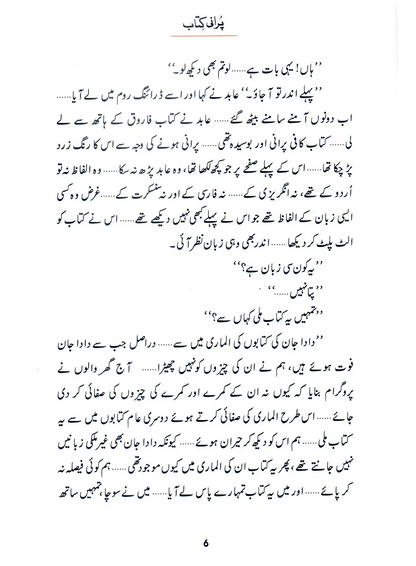 پرانی کتاب
’’ہاں! یہی بات ہے...... لو تم بھی دیکھ لو۔‘‘
’’پہلے اندر تو آ جاؤ۔‘‘ عابد نے کہا اور اسے ڈرائنگ روم میں لے آیا......
اب دونوں آمنے سامنے بیٹھ گئے...... عابد نے کتاب فاروق کے ہاتھ سے لے
لی...... کتاب کافی پرانی اور بوسیدہ تھی...... پرانی ہونے کی وجہ سے اس کا رنگ زرد
پڑ چکا تھا...... اس کے پہلے صفحے پر جو کچھ لکھا تھا، وہ عابد پڑھ نہ سکا...... وہ الفاظ نہ تو
اُردو کے تھے، نہ انگریزی کے...... نہ فارسی کے اور نہ سنسکرت کے...... غرض وہ کسی
ایسی زبان کے الفاظ تھے جو اس نے پہلے کبھی نہیں دیکھے تھے...... اس نے کتاب کو
الٹ پلٹ کر دیکھا...... اندر بھی وہی زبان نظر آئی۔
’’یہ کون سی زبان ہے؟‘‘
’’پتا نہیں......‘‘
’’تمہیں یہ کتاب ملی کہاں سے؟‘‘
’’دادا جان کی کتابوں کی الماری میں سے...... دراصل جب سے دادا جان
فوت ہوئے ہیں، ہم نے ان کی چیزوں کو نہیں چھیڑا...... آج گھر والوں نے
پروگرام بنایا کہ کیوں نہ ان کے کمرے اور کمرے کی چیزوں کی صفائی کر دی
جائے...... اس طرح الماری کی صفائی کرتے ہوئے دوسری عام کتابوں میں سے یہ
کتاب ملی...... ہم اس کو دیکھ کر حیران ہوئے...... کیونکہ دادا جان بھی غیر ملکی زبانیں
نہیں جانتے تھے، پھر یہ کتاب ان کی الماری میں کیوں موجود تھی...... ہم کوئی فیصلہ نہ
کر پائے...... اور میں یہ کتاب تمہارے پاس لے آیا...... میں نے سوچا، تمہیں ساتھ
6